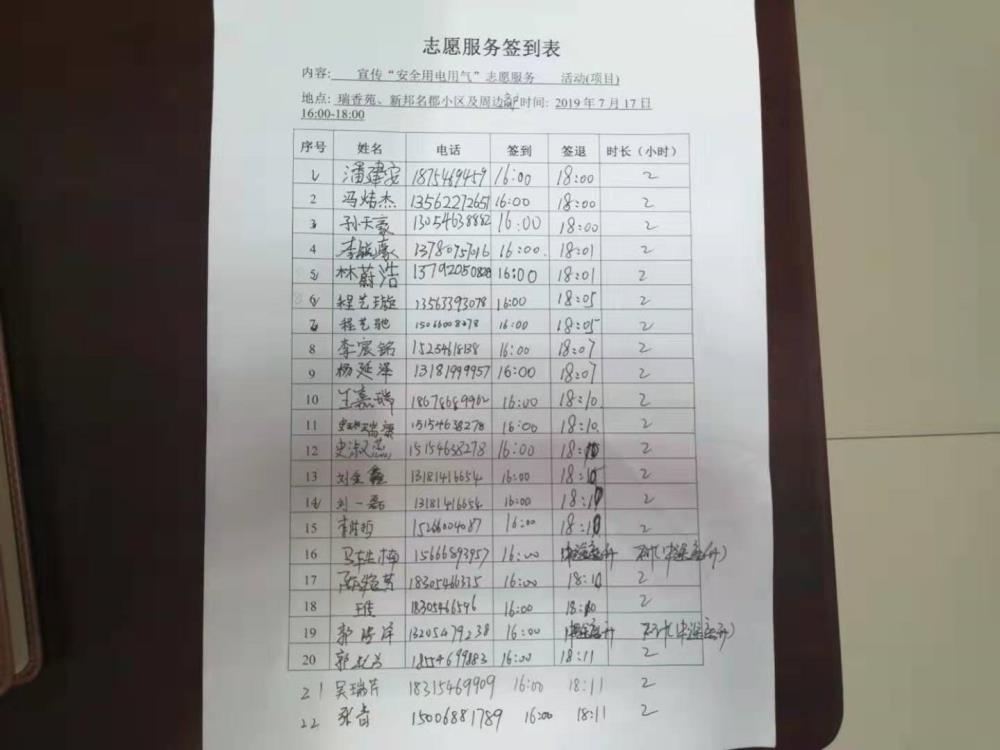 志愿服务签到表
内容: 宣传“安全用电用气”志愿服务 活动(项目)
地点: 瑞香苑、新邦名郡小区及周边 时间: 2019年7月17日
16:00-18:00
序号 姓名 电话 签到 签退 时长（小时）
1 潘建安 1875469459 16:00 18:00 2
2 冯焙杰 13562272651 16:00 18:00 2
3 孙天豪 13054638882 16:00 18:00 2
4 13780757016 16:00 18:01 2
5 林蔚浩 13792050828 16:00 18:01 2
6 程艺璇 13563393078 16:00 18:05 2
7 程艺驰 15066008278 16:00 18:05 2
8 李宸铭 16:00 18:07 2
9 杨延泽 13181999957 16:00 18:07 2
10 王嘉瑞 18678689962 16:00 18:10 2
11 15154638278 16:00 18:10 2
12 15154638278 16:00 18:10 2
13 刘圣鑫 13181416654 16:00 18:10 2
14 刘一磊 13181416654 16:00 18:10 2
15 15266004087 16:00 18:10 2
16 15666893957 16:00
17 18305466335 16:00 18:10 2
18 王佳 18305466596 16:00 18:10 2
19 13205479238 16:00
20 18554699883 16:00 18:11 2
21 吴瑞芹 18315469909 16:00 18:11 2
22 张 15006881789 16:00 18:11 2